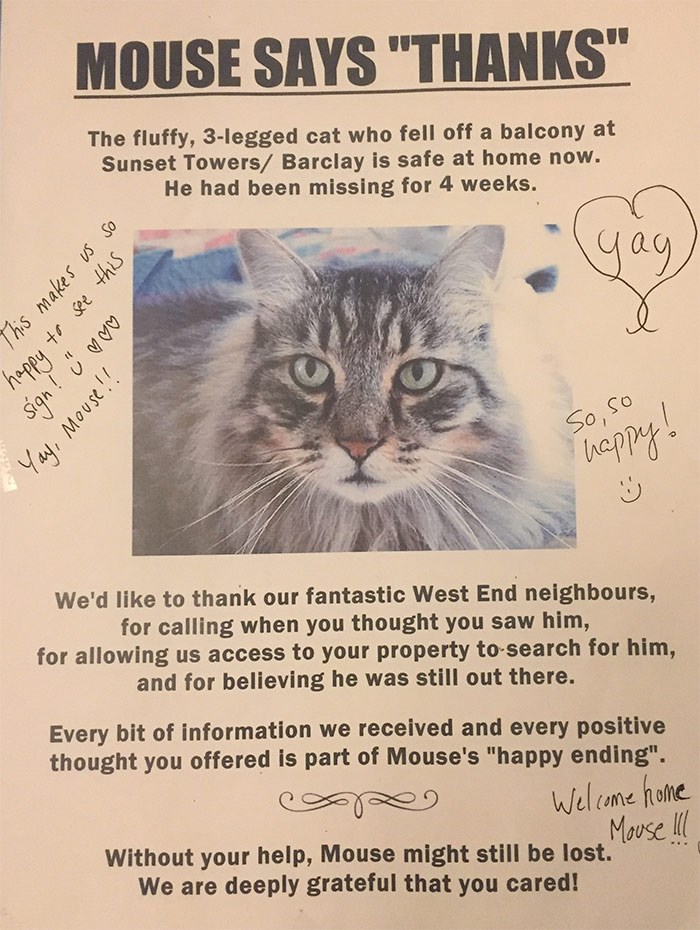 MOUSE SAYS "THANKS"
The fluffy, 3-legged cat who fell off a balcony at
Sunset Towers/ Barclay is safe at home now.
He had been missing for 4 weeks.
This makes us so
happy to see this
sign! ♡♡♡
Yay, Mouse!!
yay
so, so
happy!
We'd like to thank our fantastic West End neighbours,
for calling when you thought you saw him,
for allowing us access to your property to search for him,
and for believing he was still out there.
Every bit of information we received and every positive
thought you offered is part of Mouse's "happy ending".
Welcome home
Mouse !!!
Without your help, Mouse might still be lost.
We are deeply grateful that you cared!